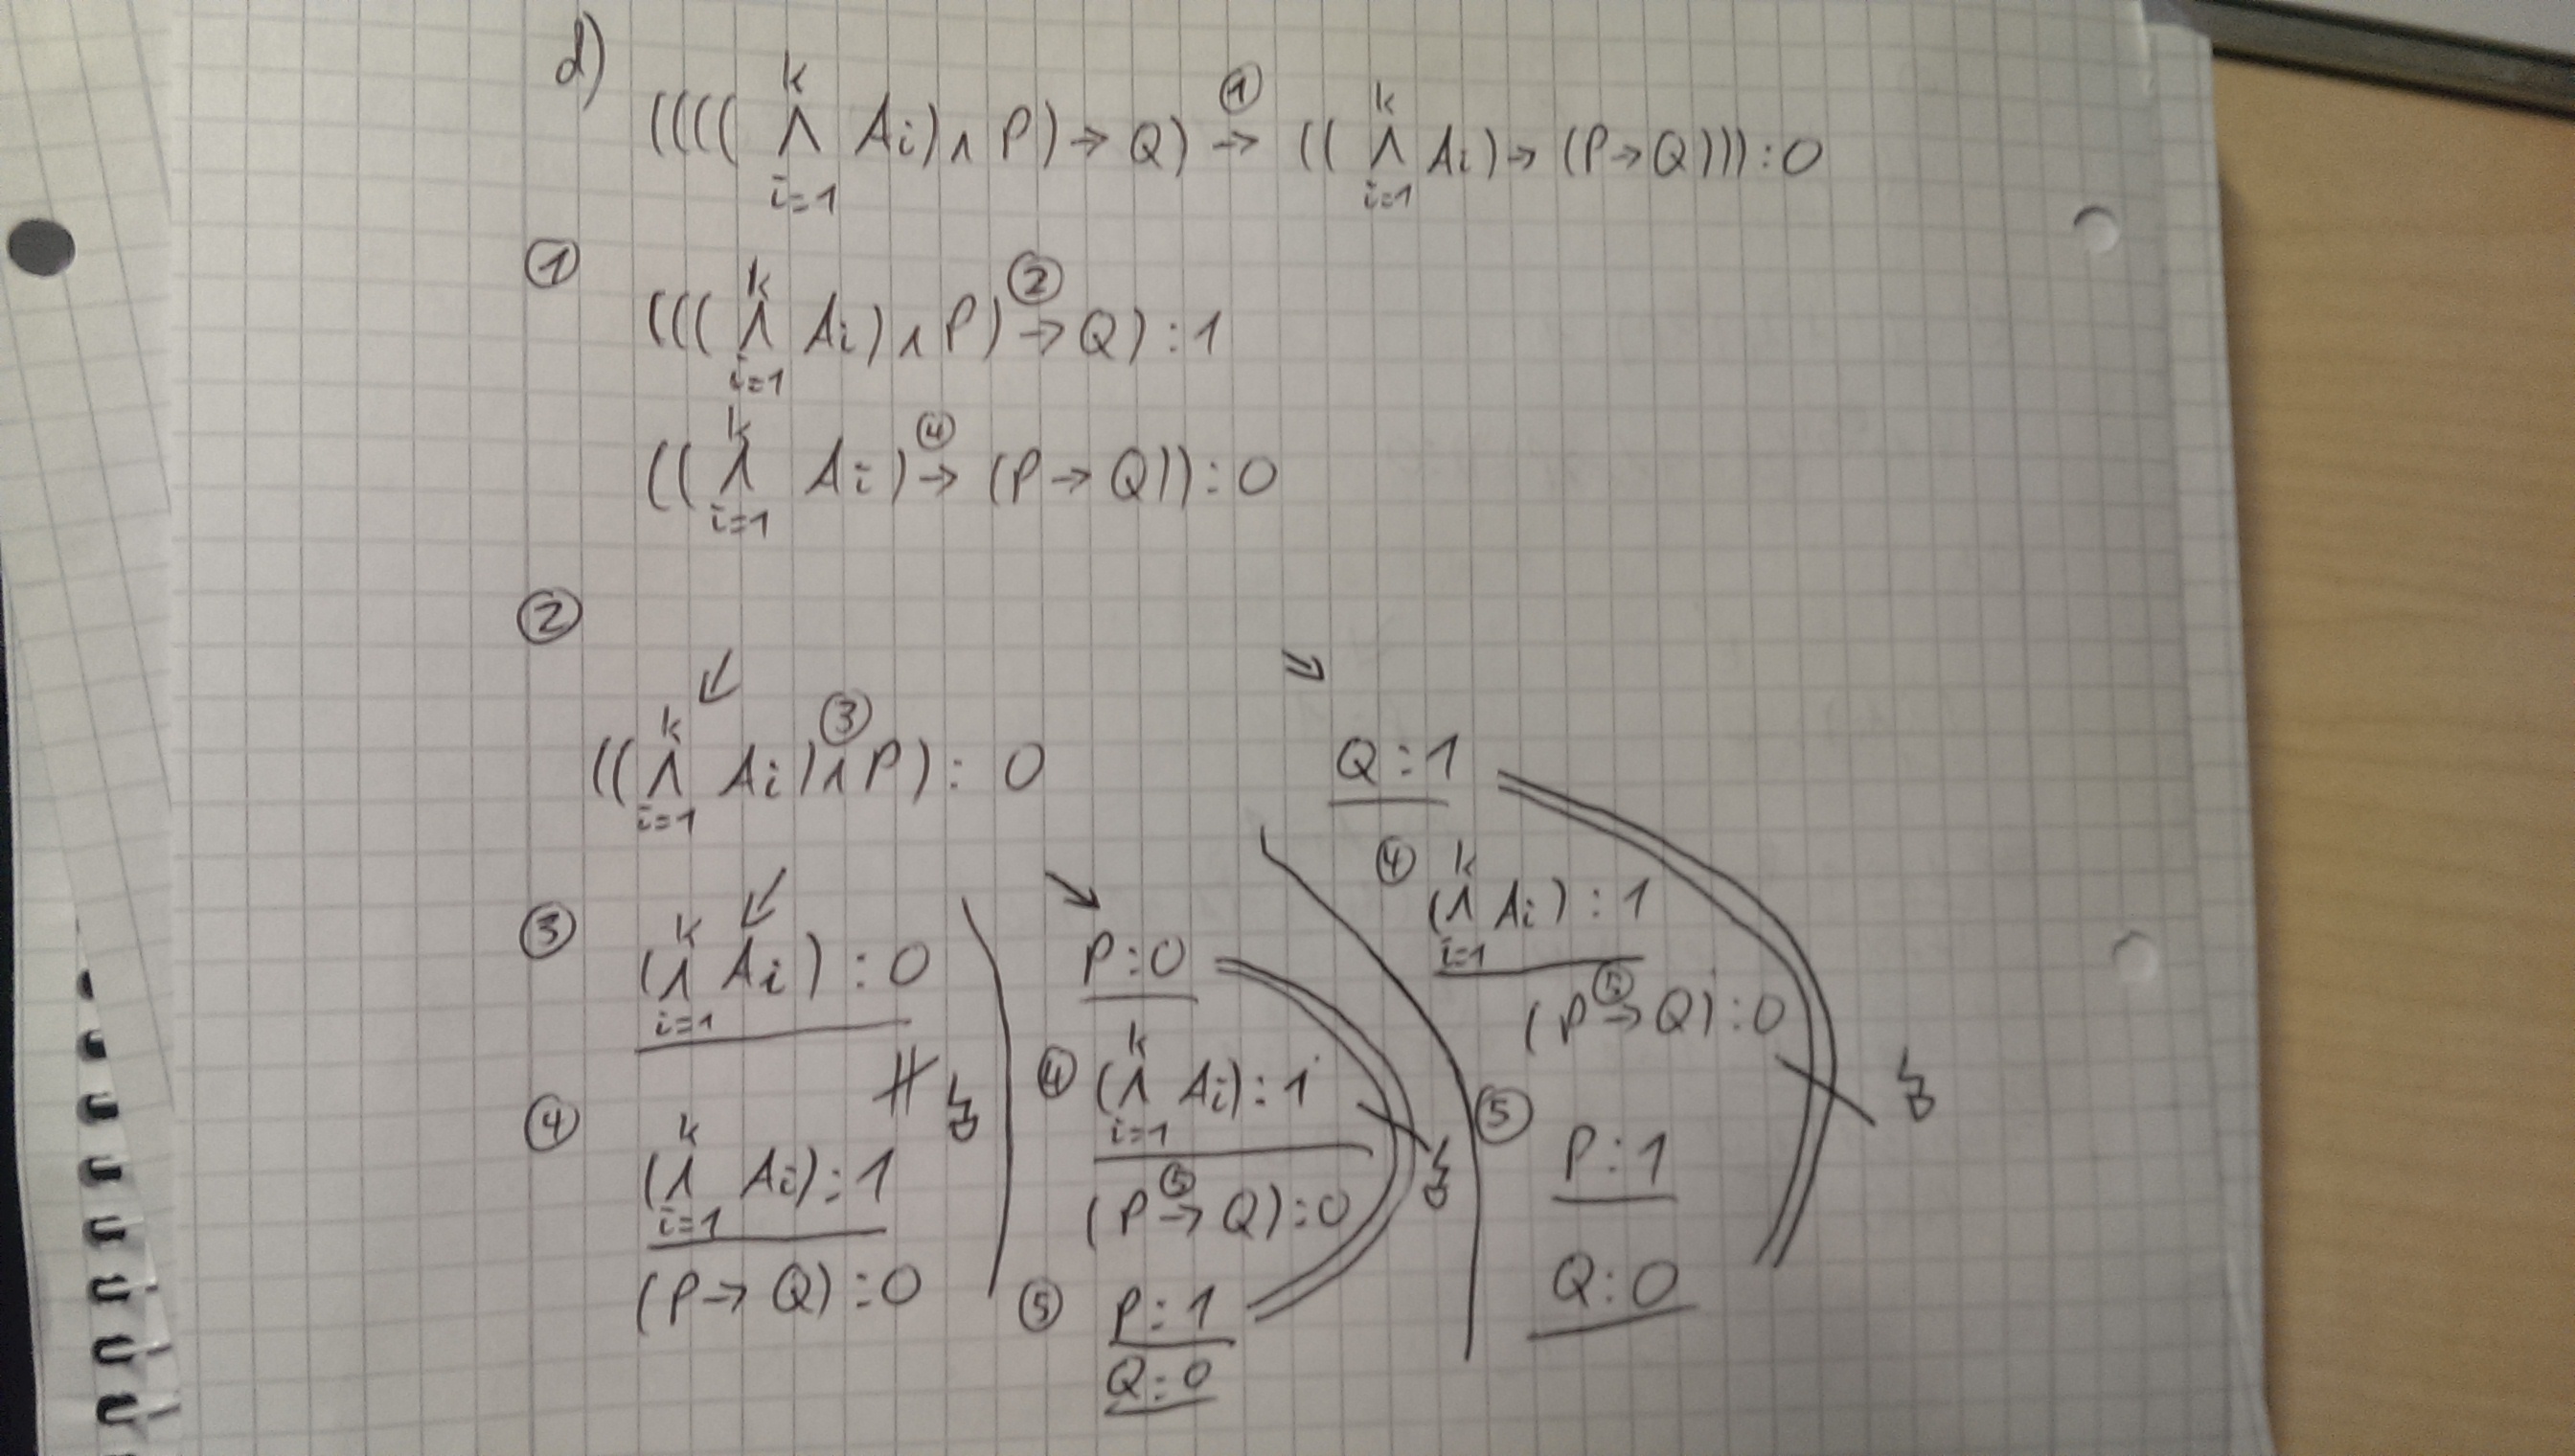 d) ((((⋀_{i=1}^{k} Ai) ∧ P) → Q) →^① ((⋀_{i=1}^{k} Ai) → (P → Q))) : 0
① (((⋀_{i=1}^{k} Ai) ∧ P) →^② Q) : 1
((⋀_{i=1}^{k} Ai) →^④ (P → Q)) : 0
②
↙ ↘
((⋀_{i=1}^{k} Ai) ∧^③ P) : 0
↙ ↘
③ (⋀_{i=1}^{k} Ai) : 0
↯
④ (⋀_{i=1}^{k} Ai) : 1
(P → Q) : 0
P : 0
④ (⋀_{i=1}^{k} Ai) : 1
(P →^⑤ Q) : 0
⑤ P : 1
Q : 0
↯
Q : 1
④ (⋀_{i=1}^{k} Ai) : 1
(P →^⑤ Q) : 0
⑤ P : 1
Q : 0
↯